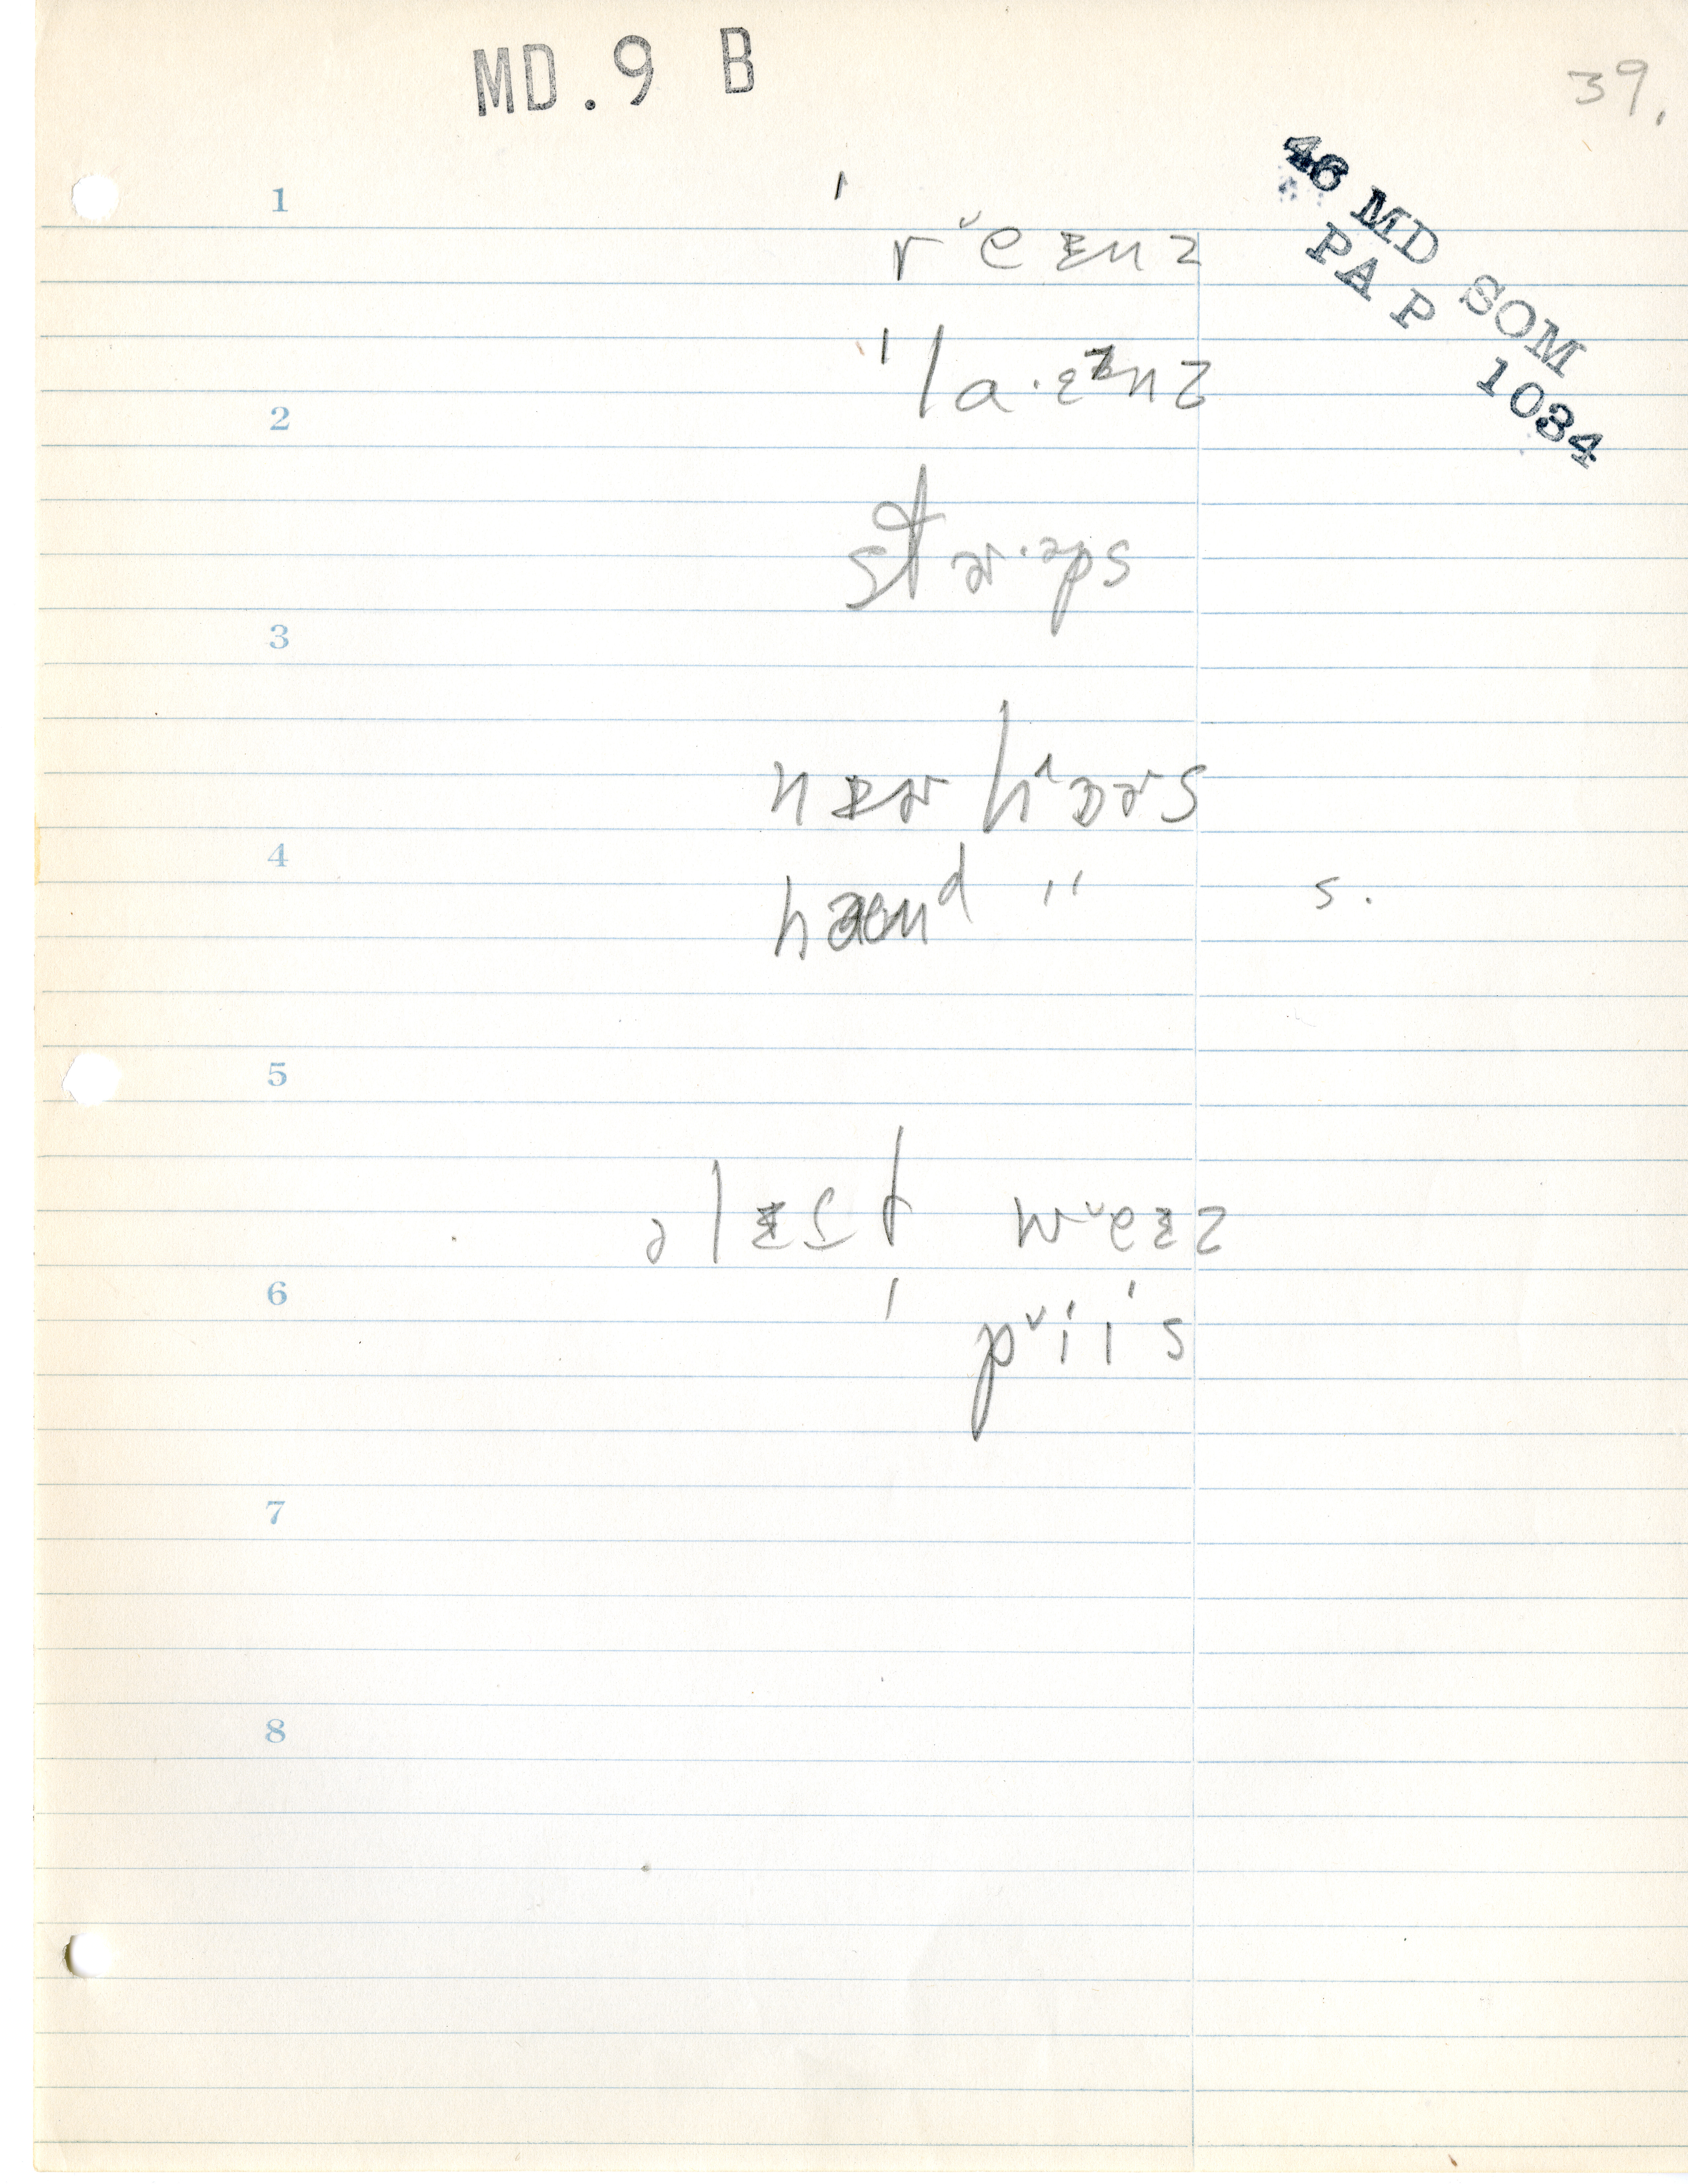 MD. 9 B
39.
46 MD SOM
PA P 1034
1
ˈrˇeɛnz
2
ˈla·ɛnz
stɚ·əps
3
nɛɚ hˆɔɚs
4
hænᵈ " s.
5
ə lɛft wˇeɛz
6
ˈpˇiɪˈs
7
8